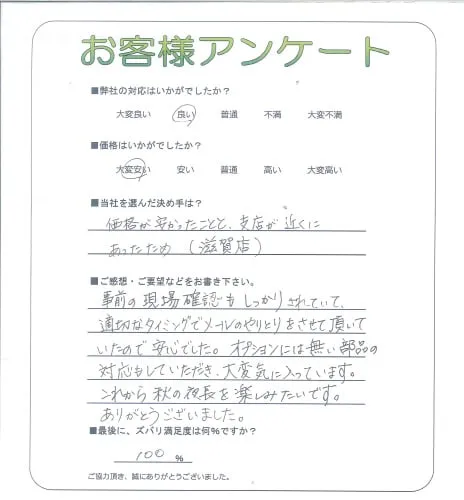 お客様アンケート
■弊社の対応はいかがでしたか？
大変良い 良い 普通 不満 大変不満
■価格はいかがでしたか？
大変安い 安い 普通 高い 大変高い
■当社を選んだ決め手は？
価格が安かったことと、支店が近くに
あったため（滋賀店）
■ご感想・ご要望などをお書き下さい。
事前の現場確認もしっかりされていて、
適切なタイミングでメールのやりとりをさせて頂いて
いたので安心でした。オプションには無い部品の
対応もしていただき、大変気に入っています。
これから秋の夜長を楽しみたいです。
ありがとうございました。
■最後に、ズバリ満足度は何％ですか？
100 %
ご協力頂き、誠にありがとうございました。